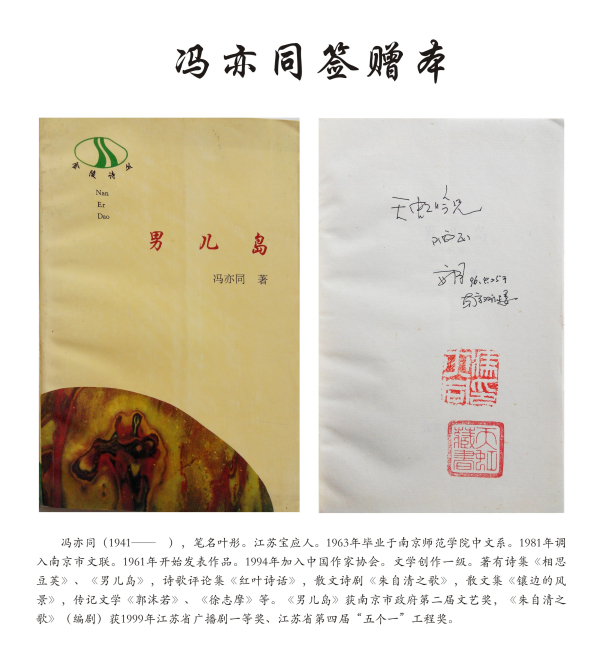 冯亦同签赠本
金陵诗丛
Nan
Er
Dao
男儿岛
冯亦同 著
天虹吟兄
96.4.25于
天虹
藏書
冯亦同（1941—— ），笔名叶彤。江苏宝应人。1963年毕业于南京师范学院中文系。1981年调
入南京市文联。1961年开始发表作品。1994年加入中国作家协会。文学创作一级。著有诗集《相思
豆荚》、《男儿岛》，诗歌评论集《红叶诗话》，散文诗剧《朱自清之歌》，散文集《镶边的风
景》，传记文学《郭沫若》、《徐志摩》等。《男儿岛》获南京市政府第二届文艺奖，《朱自清之
歌》（编剧）获1999年江苏省广播剧一等奖、江苏省第四届“五个一”工程奖。